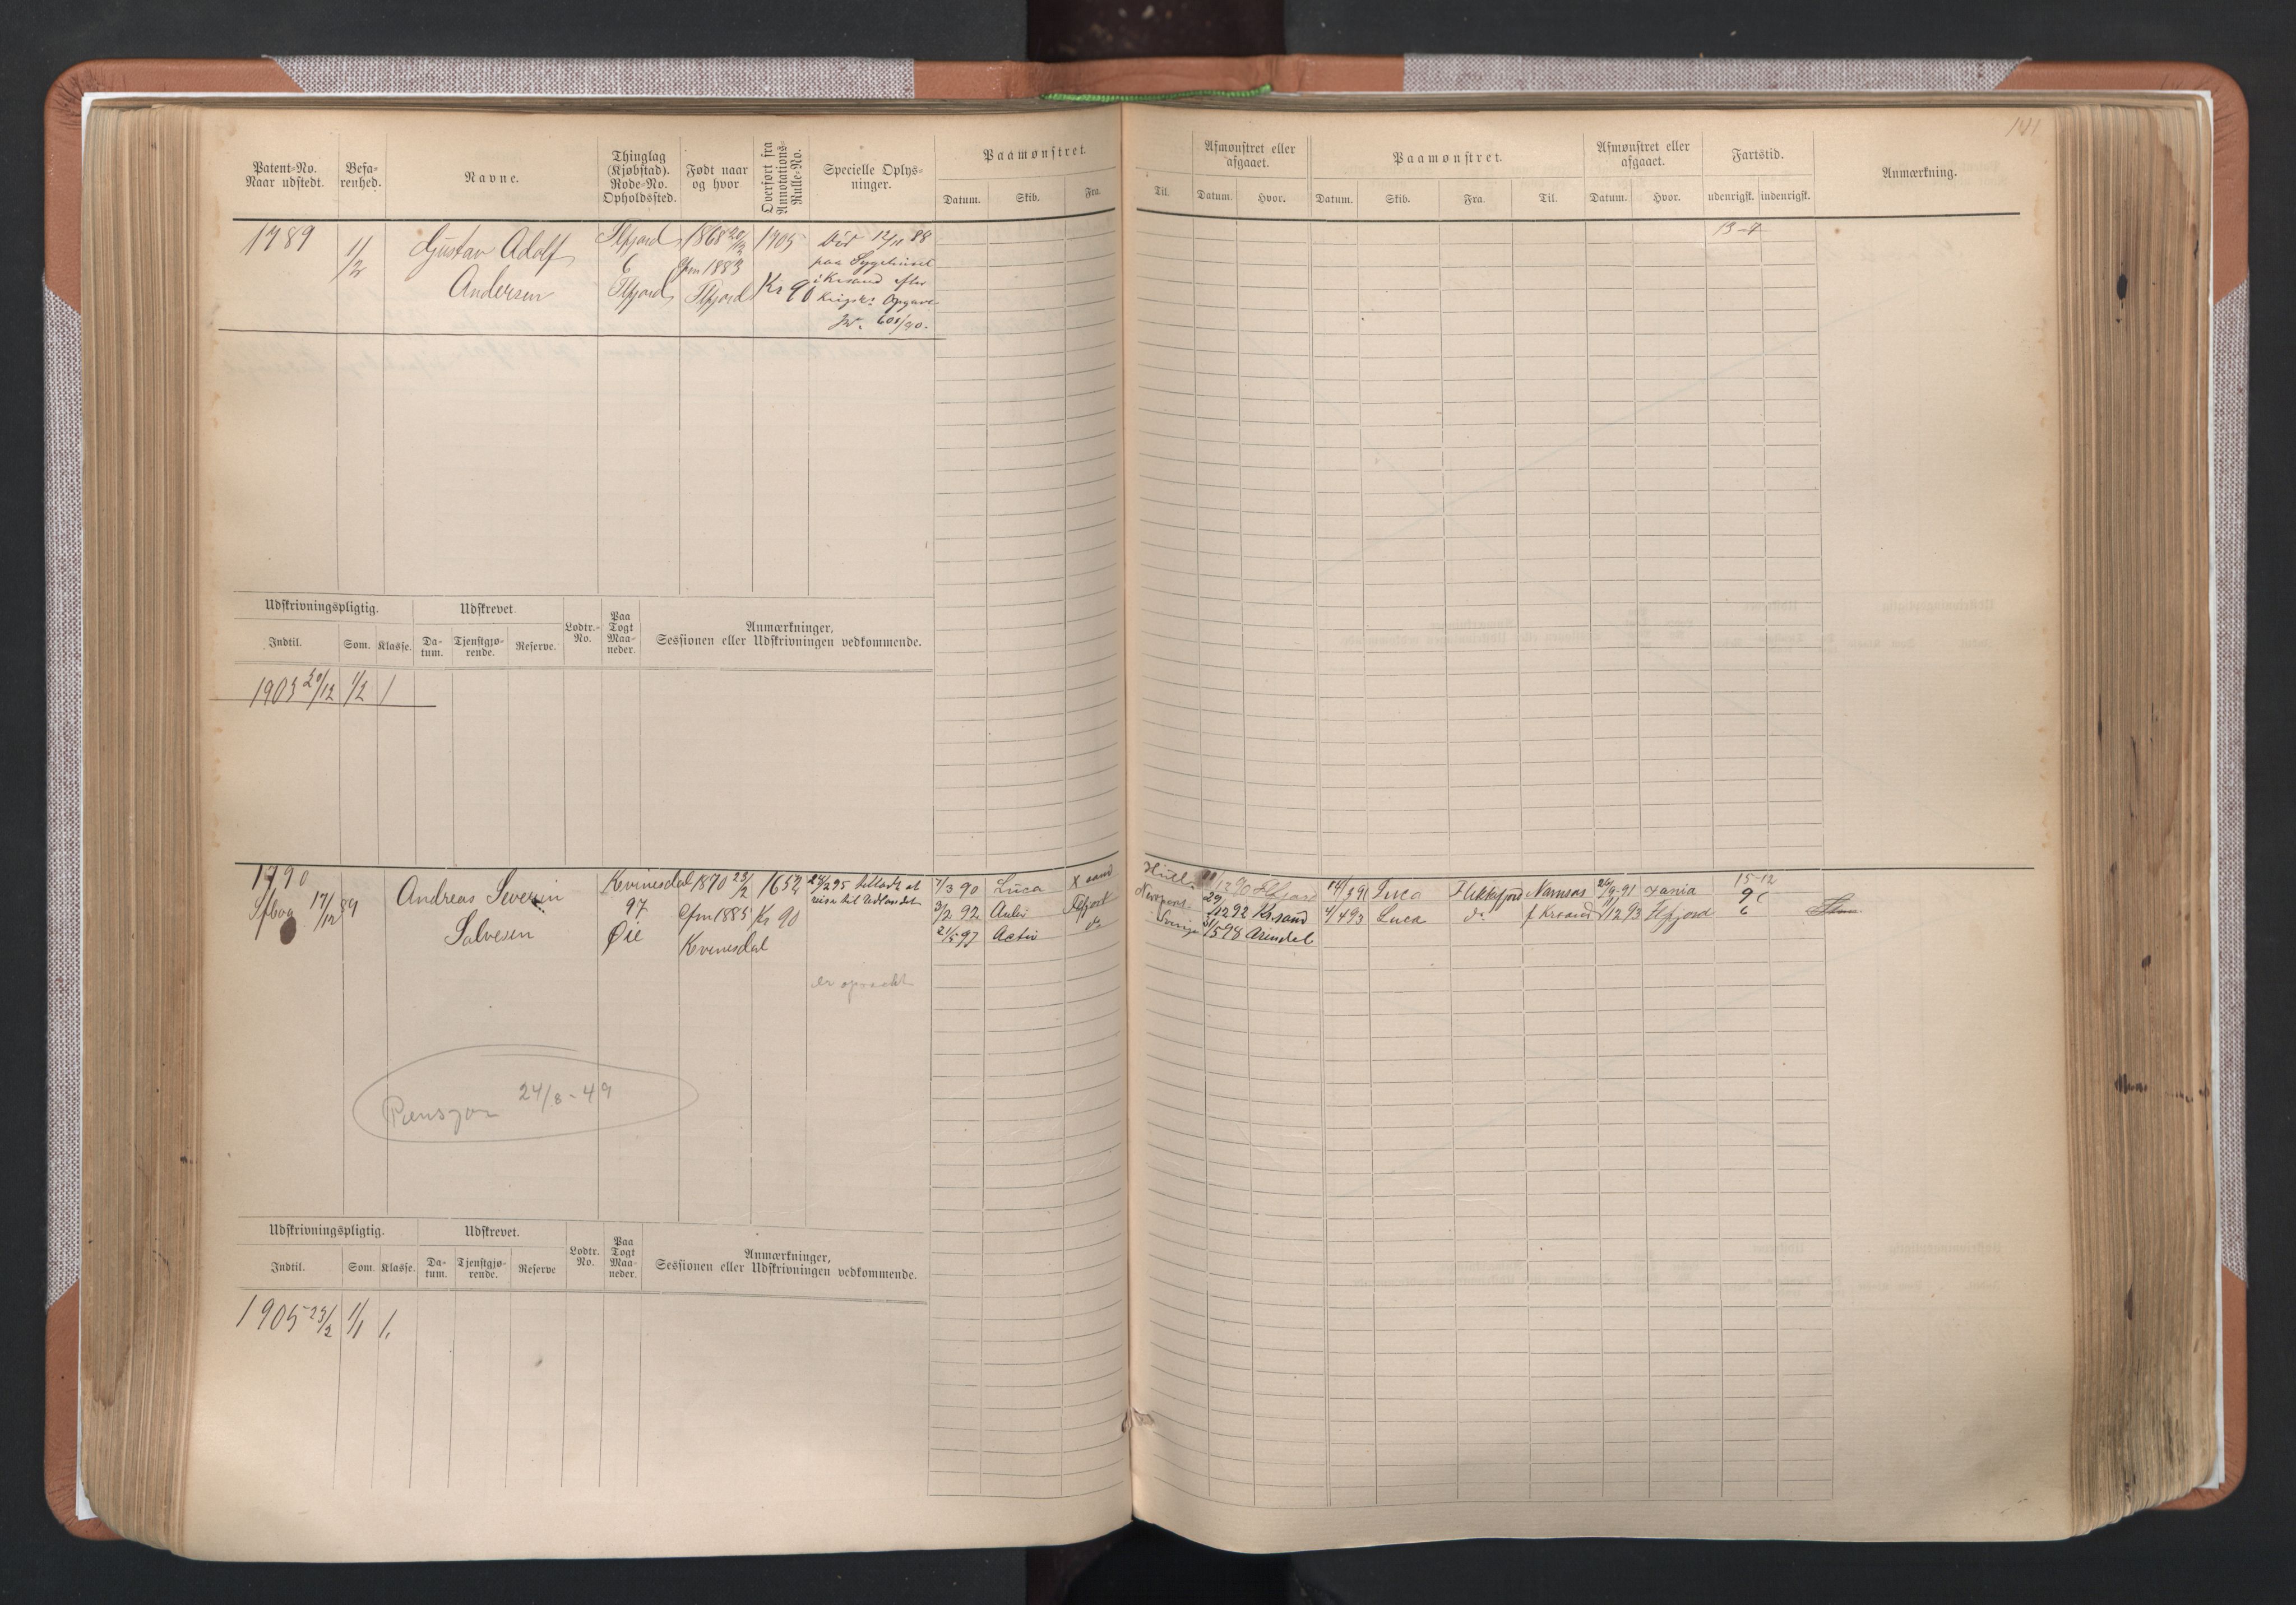 141
Patent-No. Naar udstedt.
Befa-renhed.
Navne.
Thinglag (Kjøbstad). Rode-No. Opholdssted.
Født naar og hvor
Overført fra Annotations-Rulle-No.
Specielle Oplys-ninger.
Paamønstret.
Datum. Skib. Fra.
Til.
Afmønstret eller afgaaet.
Datum. Hvor.
Paamønstret.
Datum. Skib. Fra. Til.
Afmønstret eller afgaaet.
Datum. Hvor.
Fartstid.
udenrigsk. indenrigsk.
Anmærkning.
1789 1/2 Gustav Adolf Flfjord 1868 20/12 1905 Död 12/11 88
6 Cfm 1883 paa Sygehuset
Andersen Flfjord Flfjord Kr 90 i Krsand efter
Krigsk: Opgave
Jr. 608/90.
13-7
Udskrivningspligtig. Udskrevet.
Lodtr.-No.
Paa Togt Maa-neder.
Anmærkninger, Sessionen eller Udskrivningen vedkommende.
Indtil. Som. Klasse. Da-tum. Tjenstgjø-rende. Reserve.
1903 20/12 1/2 1
1790 Andreas Severin Kvinesdal 1870 23/2 1652 24/2 95 tilladt at
reise til Udlandet
Sfbog 17/12 89 97 Cfm 1885 Kr 90
Salvesen Øie Kvinesdal
7/3 90 Luca Xsand Hull
3/2 92 Flfjord
21/5 97 Activ do Sverige 31/5 98 Arendal
1292 Krsand
14/3 91 Luca Flekkefjord Namsos 26/9-91 Xania 15-12
4/4 93 Luca do f Krsand 11/12 93 Flfjord 6
er opsøckt
Pensjon 24/8-49
Udskrivningspligtig. Udskrevet.
Lodtr. No.
Paa Togt Maa-neder.
Anmærkninger, Sessionen eller Udskrivningen vedkommende.
Indtil. Som. Klasse. Da-tum. Tjenstgjø-rende. Reserve
1905 23/2 1/1 1.